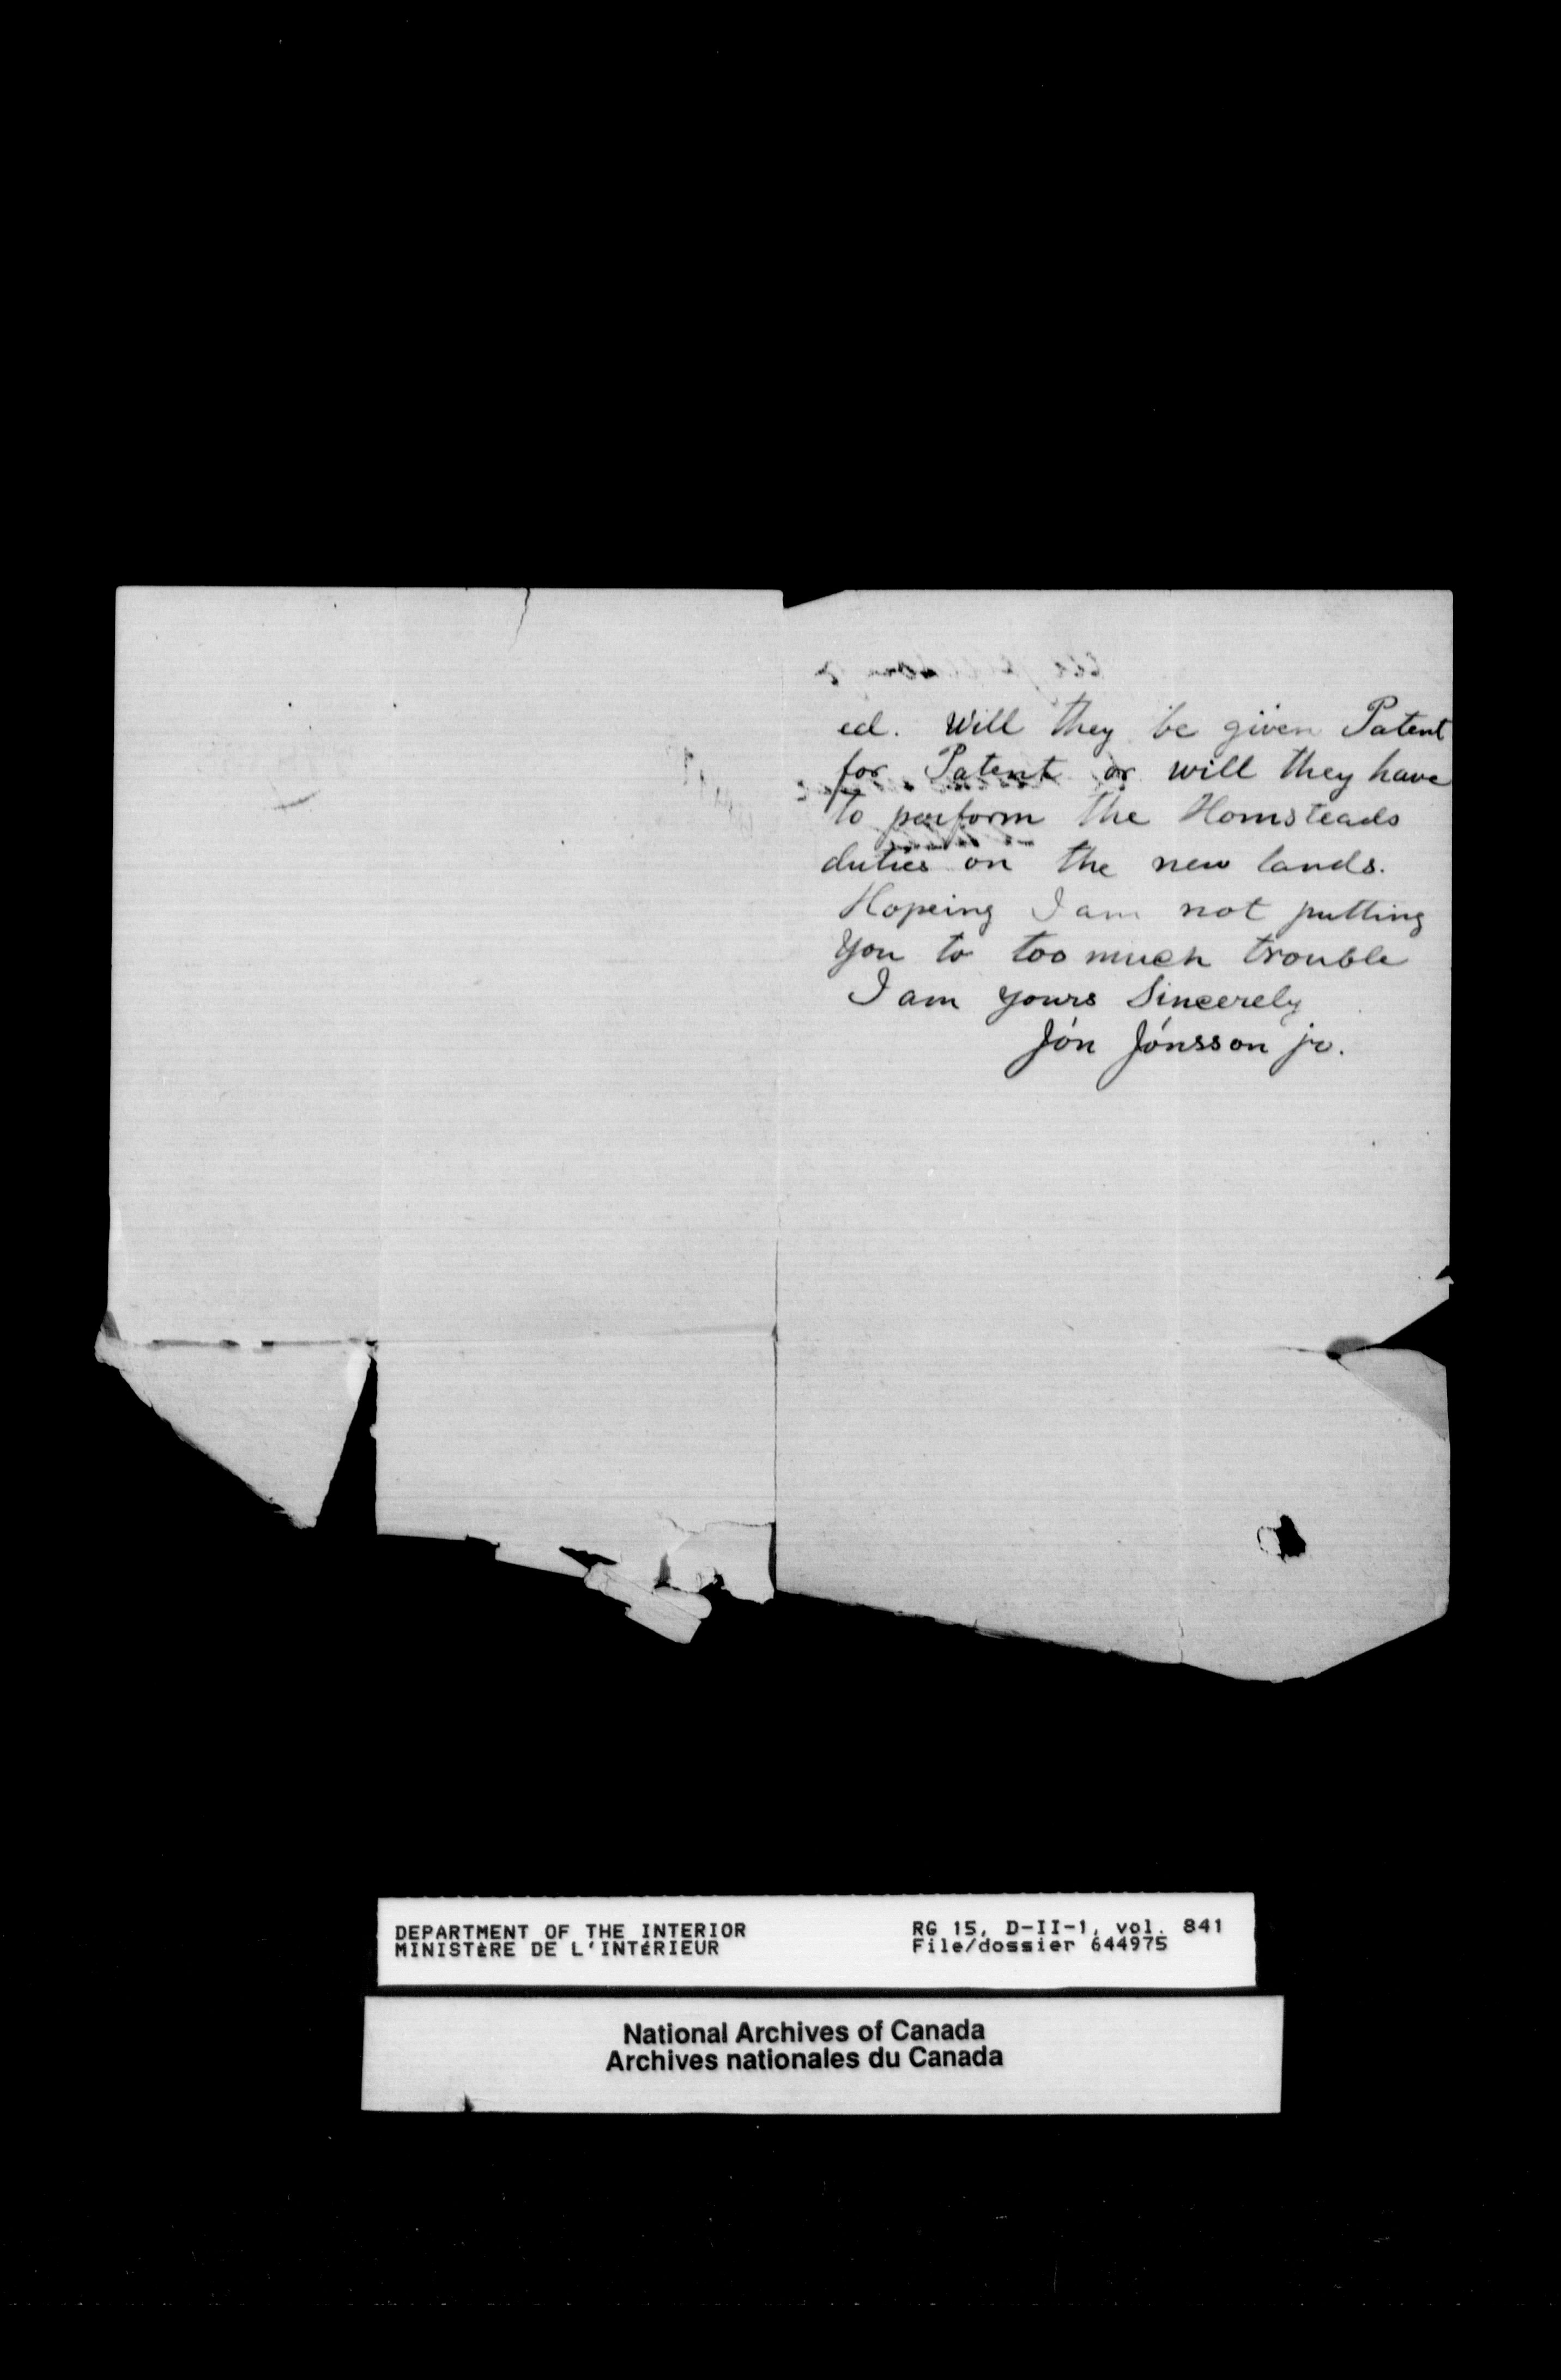 ed. Will they be given Patent
for Patent or will they have
to perform the Homsteads
duties on the new lands.
Hopeing I am not putting
you to too much trouble
I am yours Sincerely
Jón Jónsson jr.
DEPARTMENT OF THE INTERIOR
MINISTÈRE DE L'INTÉRIEUR
RG 15, D-II-1, vol. 841
File/dossier 644975
National Archives of Canada
Archives nationales du Canada